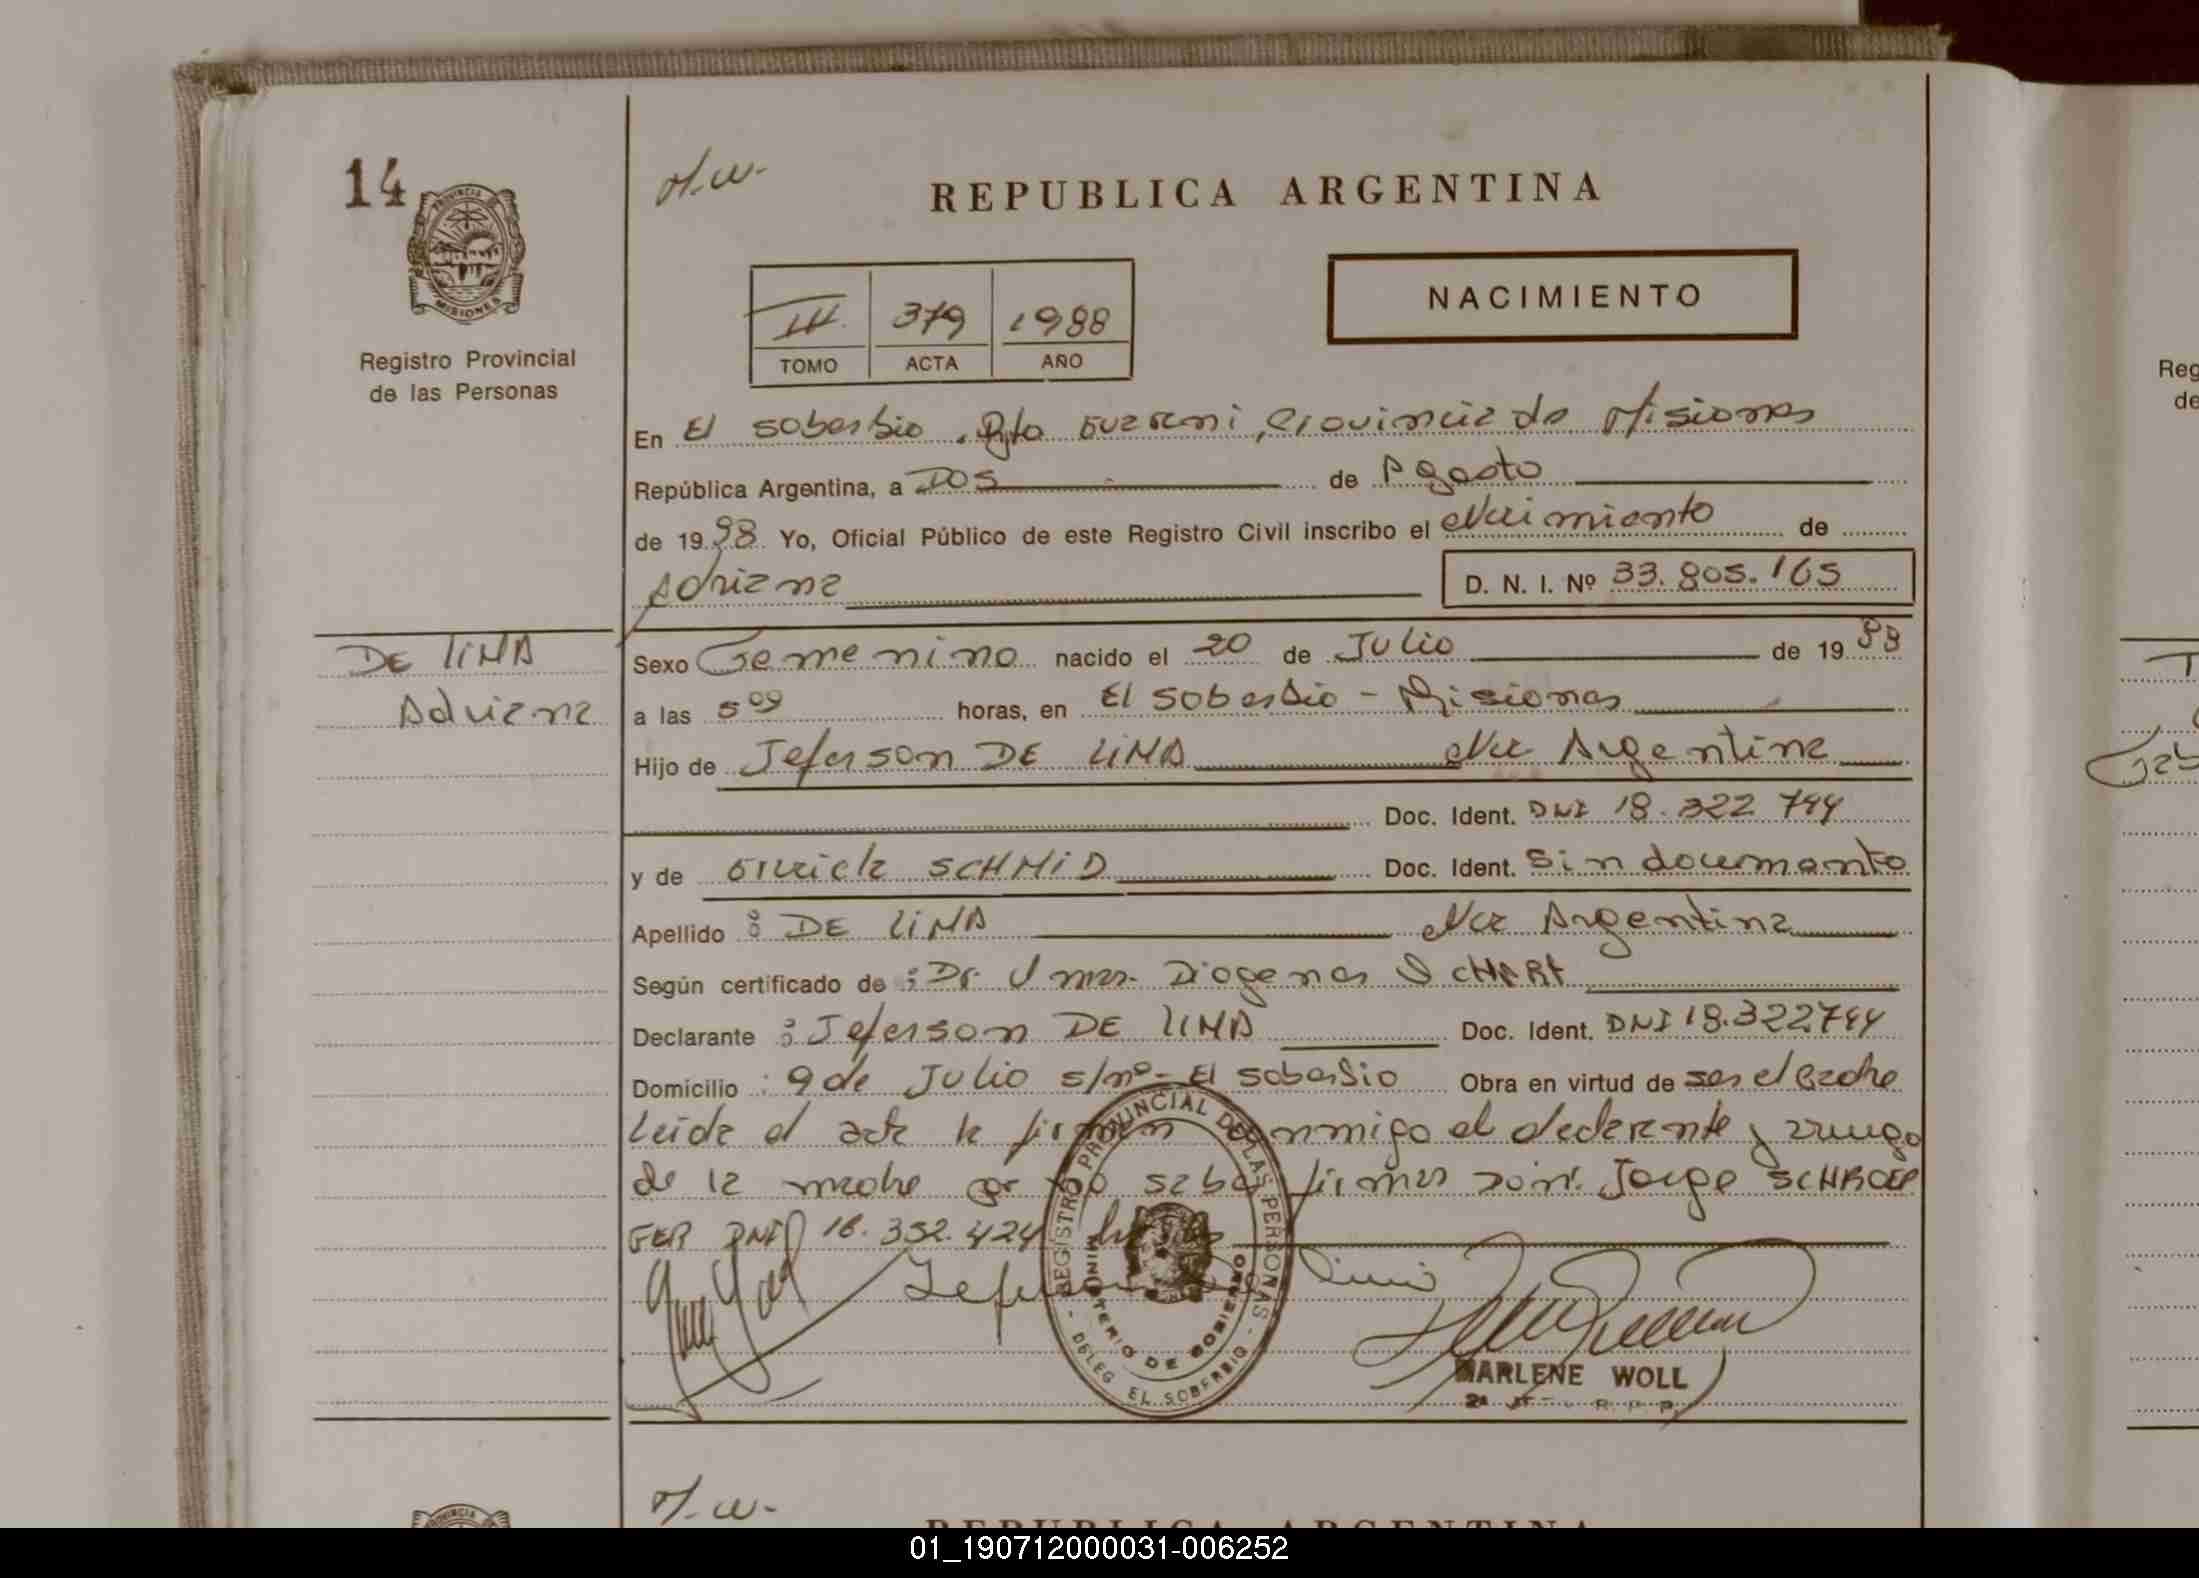 14
PROVINCIA
MISIONES
Registro Provincial
de las Personas
M.W.
REPUBLICA ARGENTINA
III 379 1988
TOMO ACTA AÑO
NACIMIENTO
En El Soberbio, Dpto Guarani, Provincia de Misiones
República Argentina, a DOS de Agosto
de 1988 Yo, Oficial Público de este Registro Civil inscribo el Nacimiento de
Adriana D. N. I. Nº 33.805.165
DE LIMA
Adriana
Sexo Femenino nacido el 20 de Julio de 1988
a las 5 horas, en El Soberbio - Misiones
Hijo de Jeferson DE LIMA Nac Argentina
Doc. Ident. DNI 18.322.744
y de SCHMID Doc. Ident. Sin documento
Apellido : DE LIMA Nac Argentina
Según certificado de : Dr. Diogenes
Declarante : Jeferson DE LIMA Doc. Ident. DNI 18.322744
Domicilio : 9 de Julio s/nº - El Soberbio Obra en virtud de ser el padre
Leida el acta la firman conmigo el declarante y a ruego
de la madre por no saber firmar Jorge SCHROE
GER DNI 16.352.424
Jeferson de Lima
REGISTRO PROVINCIAL DE LAS PERSONAS
MINISTERIO DE GOBIERNO
DELEG EL SOBERBIO
MARLENE WOLL
R. P. P.
Reg
de
M.W.
PROVINCIA
REPUBLICA ARGENTINA
01_190712000031-006252